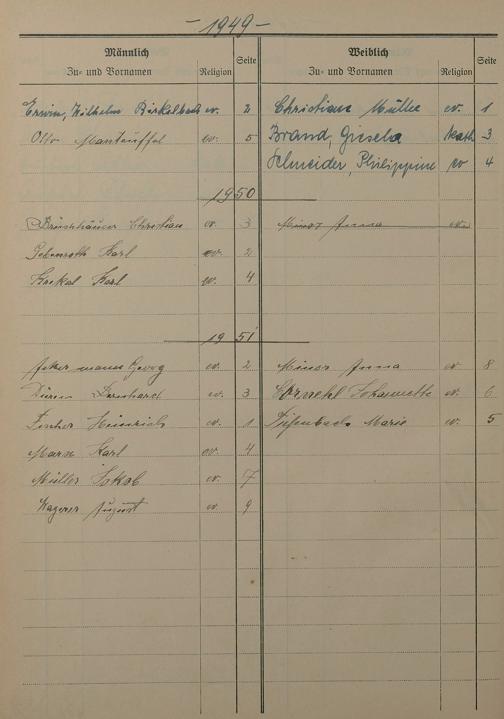 - 1949 -
Männlich Weiblich
Zu- und Vornamen Religion Seite Zu- und Vornamen Religion Seite
Erwin, Wilhelm Birkelbach ev. 2 Christiane Müller ev. 1
Otto Manteuffel ev. 5 Brand, Giesela Kath 3
Schneider, Philippine ev 4
1950
Christian ev. 3 Minor Anna ev.
Karl ev. 2
Karl ev. 4
1951
Georg ev. 2 Minor Anna ev 8
Bernhard ev. 3 Johannette ev. 6
Fischer Heinrich ev. 1 Marie ev. 5
Marx Karl ev. 4
Müller Jakob ev. 7
Wagner August ev. 9